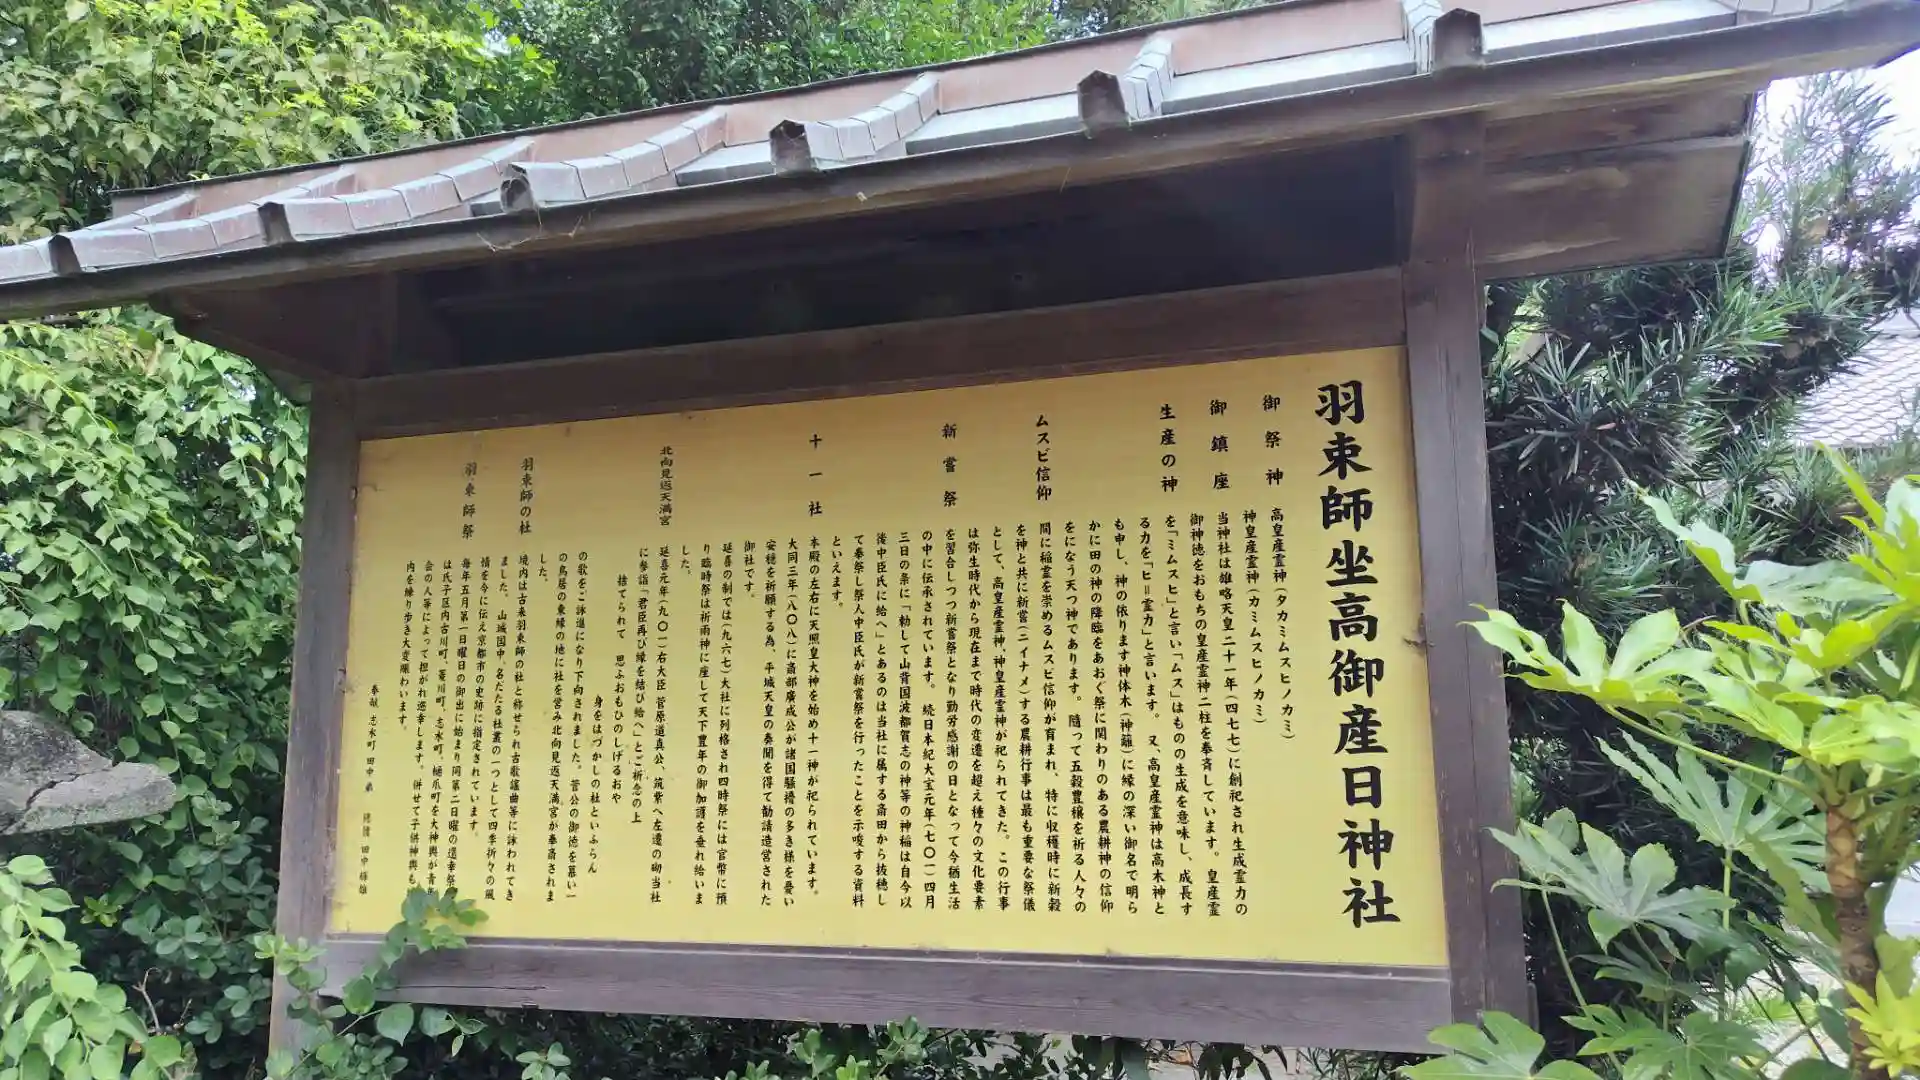 羽束師坐高御産日神社
御祭神
高皇産霊神(タカミムスヒノカミ)
神皇産霊神(カミムスヒノカミ)
御鎮座
当神社は雄略天皇二十一年(四七七)に創祀され生成霊力の
御神徳をおもちの皇産霊神二柱を奉斎しています。皇産霊
生産の神
を「ミムスヒ」と言い、「ムス」はものの生成を意味し、成長す
る力を「ヒ=霊力」と言います。又、高皇産霊神は高木神と
も申し、神の依ります神体木(神籬)に縁の深い御名で明ら
かに田の神の降臨をあおぐ祭に関わりのある農耕神の信仰
をになう天つ神であります。随って五穀豊穣を祈る人々の
ムスビ信仰
間に稲霊を崇めるムスビ信仰が育まれ、特に収穫時に新穀
を神と共に新嘗(ニイナメ)する農耕行事は最も重要な祭儀
として、高皇産霊神、神皇産霊神が祀られてきた。この行事
は弥生時代から現在まで時代の変遷を超え種々の文化要素
新嘗祭
を習合しつつ新嘗祭となり勤労感謝の日となって今猶生活
の中に伝承されています。続日本紀大宝元年(七〇一)四月
三日の条に「勅して山背国波都賀志の神等の神稲は自今以
後中臣氏に給へ」とあるのは当社に属する斎田から抜穂し
て奉祭し祭人中臣氏が新嘗祭を行ったことを示唆する資料
といえます。
十一社
本殿の左右に天照皇大神を始め十一神が祀られています。
大同三年(八〇八)に斎部廣成公が諸国騒擾の多き様を憂い
安穏を祈願する為、平城天皇の奏聞を得て勧請造営された
御社です。
延喜の制では(九六七)大社に列格され四時祭には官幣に預
り臨時祭は祈雨神に座して天下豊年の御加護を垂れ給いま
した。
北向見返天満宮
延喜元年(九〇一)右大臣 菅原道真公、筑紫へ左遷の砌当社
に参詣「君臣再び縁を結び給へ」とご祈念の上
捨てられて 思ふおもひのしげるおや
身をはづかしの社といふらん
の歌をご詠進になり下向されました。菅公の御徳を慕い一
の鳥居の東縁の地に社を営み北向見返天満宮が奉斎されま
した。
羽束師の社
境内は古来羽束師の社と称せられ古歌謡曲等に詠われてき
ました。山城国中、名たたる社叢の一つとして四季折々の風
情を今に伝え京都市の史跡に指定されています。
羽束師祭
毎年五月第一日曜日の御出に始まり同第二日曜の還幸祭
は氏子区内古川町、菱川町、志水町、樋爪町を大神輿が青年
会の人等によって担がれ巡幸します。併せて子供神輿も
内を練り歩き大変賑わいます。
奉献 志水町 田中
田中